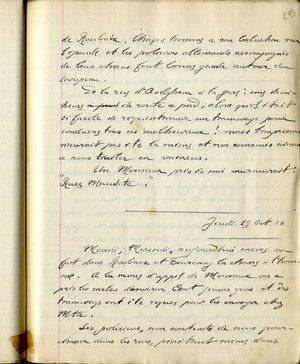 de Roubaix. Chaque homme a son baluchon sur
l'épaule et les policiers allemands accompagnés
de leurs chiens font bonne garde autour du
troupeau.
De la rue d'Avelghem à la gare: une demi-
heure de route à pied, alors qu'il était
si facile de réquisitionner un tramway pour
conduire tous ces malheureux! mais
n'aurait pas été la même et nos ennemis aiment
à nous traiter en vaincus.
Un Monsieur près de moi murmurait:
"Race Maudite".
Jeudi 19 Oct 16
Mardi, Mercredi, aujourd'hui encore on
fait dans Roubaix et Tourcoing la chasse à l'hom-
me. A la revue d'appel de Mouvaux on a
pris les cartes d'environ cent jeunes gens et des
tramways ont été requis pour les envoyer chez
Mitte.
Les policiers, non contents de nous pour-
chasser dans les rues, pénètrent même dans